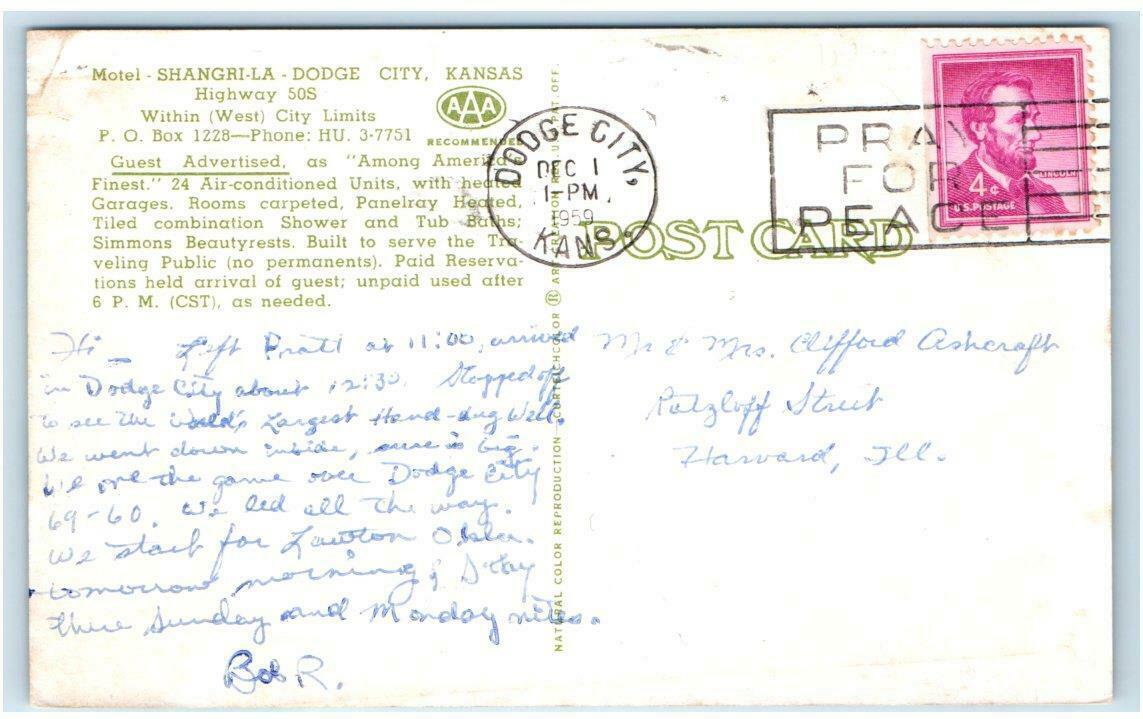 Motel - SHANGRI-LA - DODGE CITY, KANSAS
Highway 50S
Within (West) City Limits
P. O. Box 1228—Phone: HU. 3-7751
AAA
RECOMMENDED
Guest Advertised, as "Among America's
Finest." 24 Air-conditioned Units, with heated
Garages. Rooms carpeted, Panelray Heated,
Tiled combination Shower and Tub Baths;
Simmons Beautyrests. Built to serve the Tra-
veling Public (no permanents). Paid Reserva-
tions held arrival of guest; unpaid used after
6 P. M. (CST), as needed.
DODGE CITY,
DEC 1
1-PM
1959
KANS.
PRAY
FOR
PEACE
LINCOLN
4¢
U.S. POSTAGE
POST CARD
NATURAL COLOR REPRODUCTION CURTEICHCOLOR ® ART CREATION REG. U.S. PAT. OFF.
Hi — Left Pratt at 11:00, arrived
in Dodge City about 12:30. Stopped off
to see the World's Largest Hand-dug Well.
We went down inside, sure is big.
We the game over Dodge City
69-60. We led all the way.
We start for Lawton Okla.
tomorrow morning; Stay
there Sunday and Monday nites.
Bob R.
Mr & Mrs. Clifford Ashcraft
Ratzloff Street
Harvard, Ill.